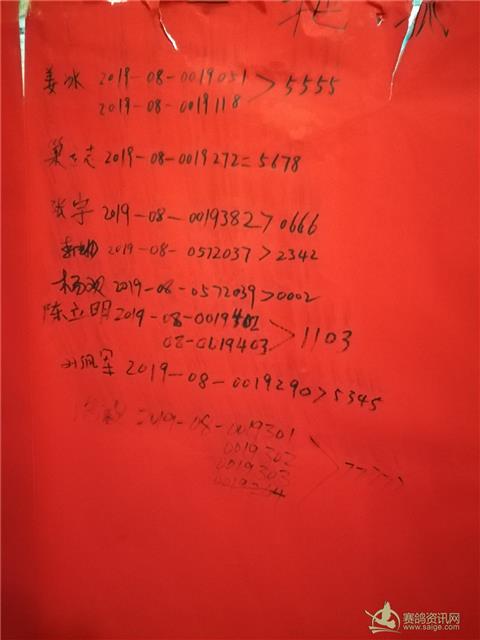 姜冰 2019-08-0019051 > 5555
2019-08-0019118
巢立志 2019-08-0019272=5678
张宇 2019-08-0019382>0666
2019-08-0572037>2342
杨双 2019-08-0572039>0002
陈立明 2019-08-0019402 >1103
08-0019403
2019-08-0019290>5345
2019-08-0019301
0019302
0019303
赛鸽资讯网
www.saige.com